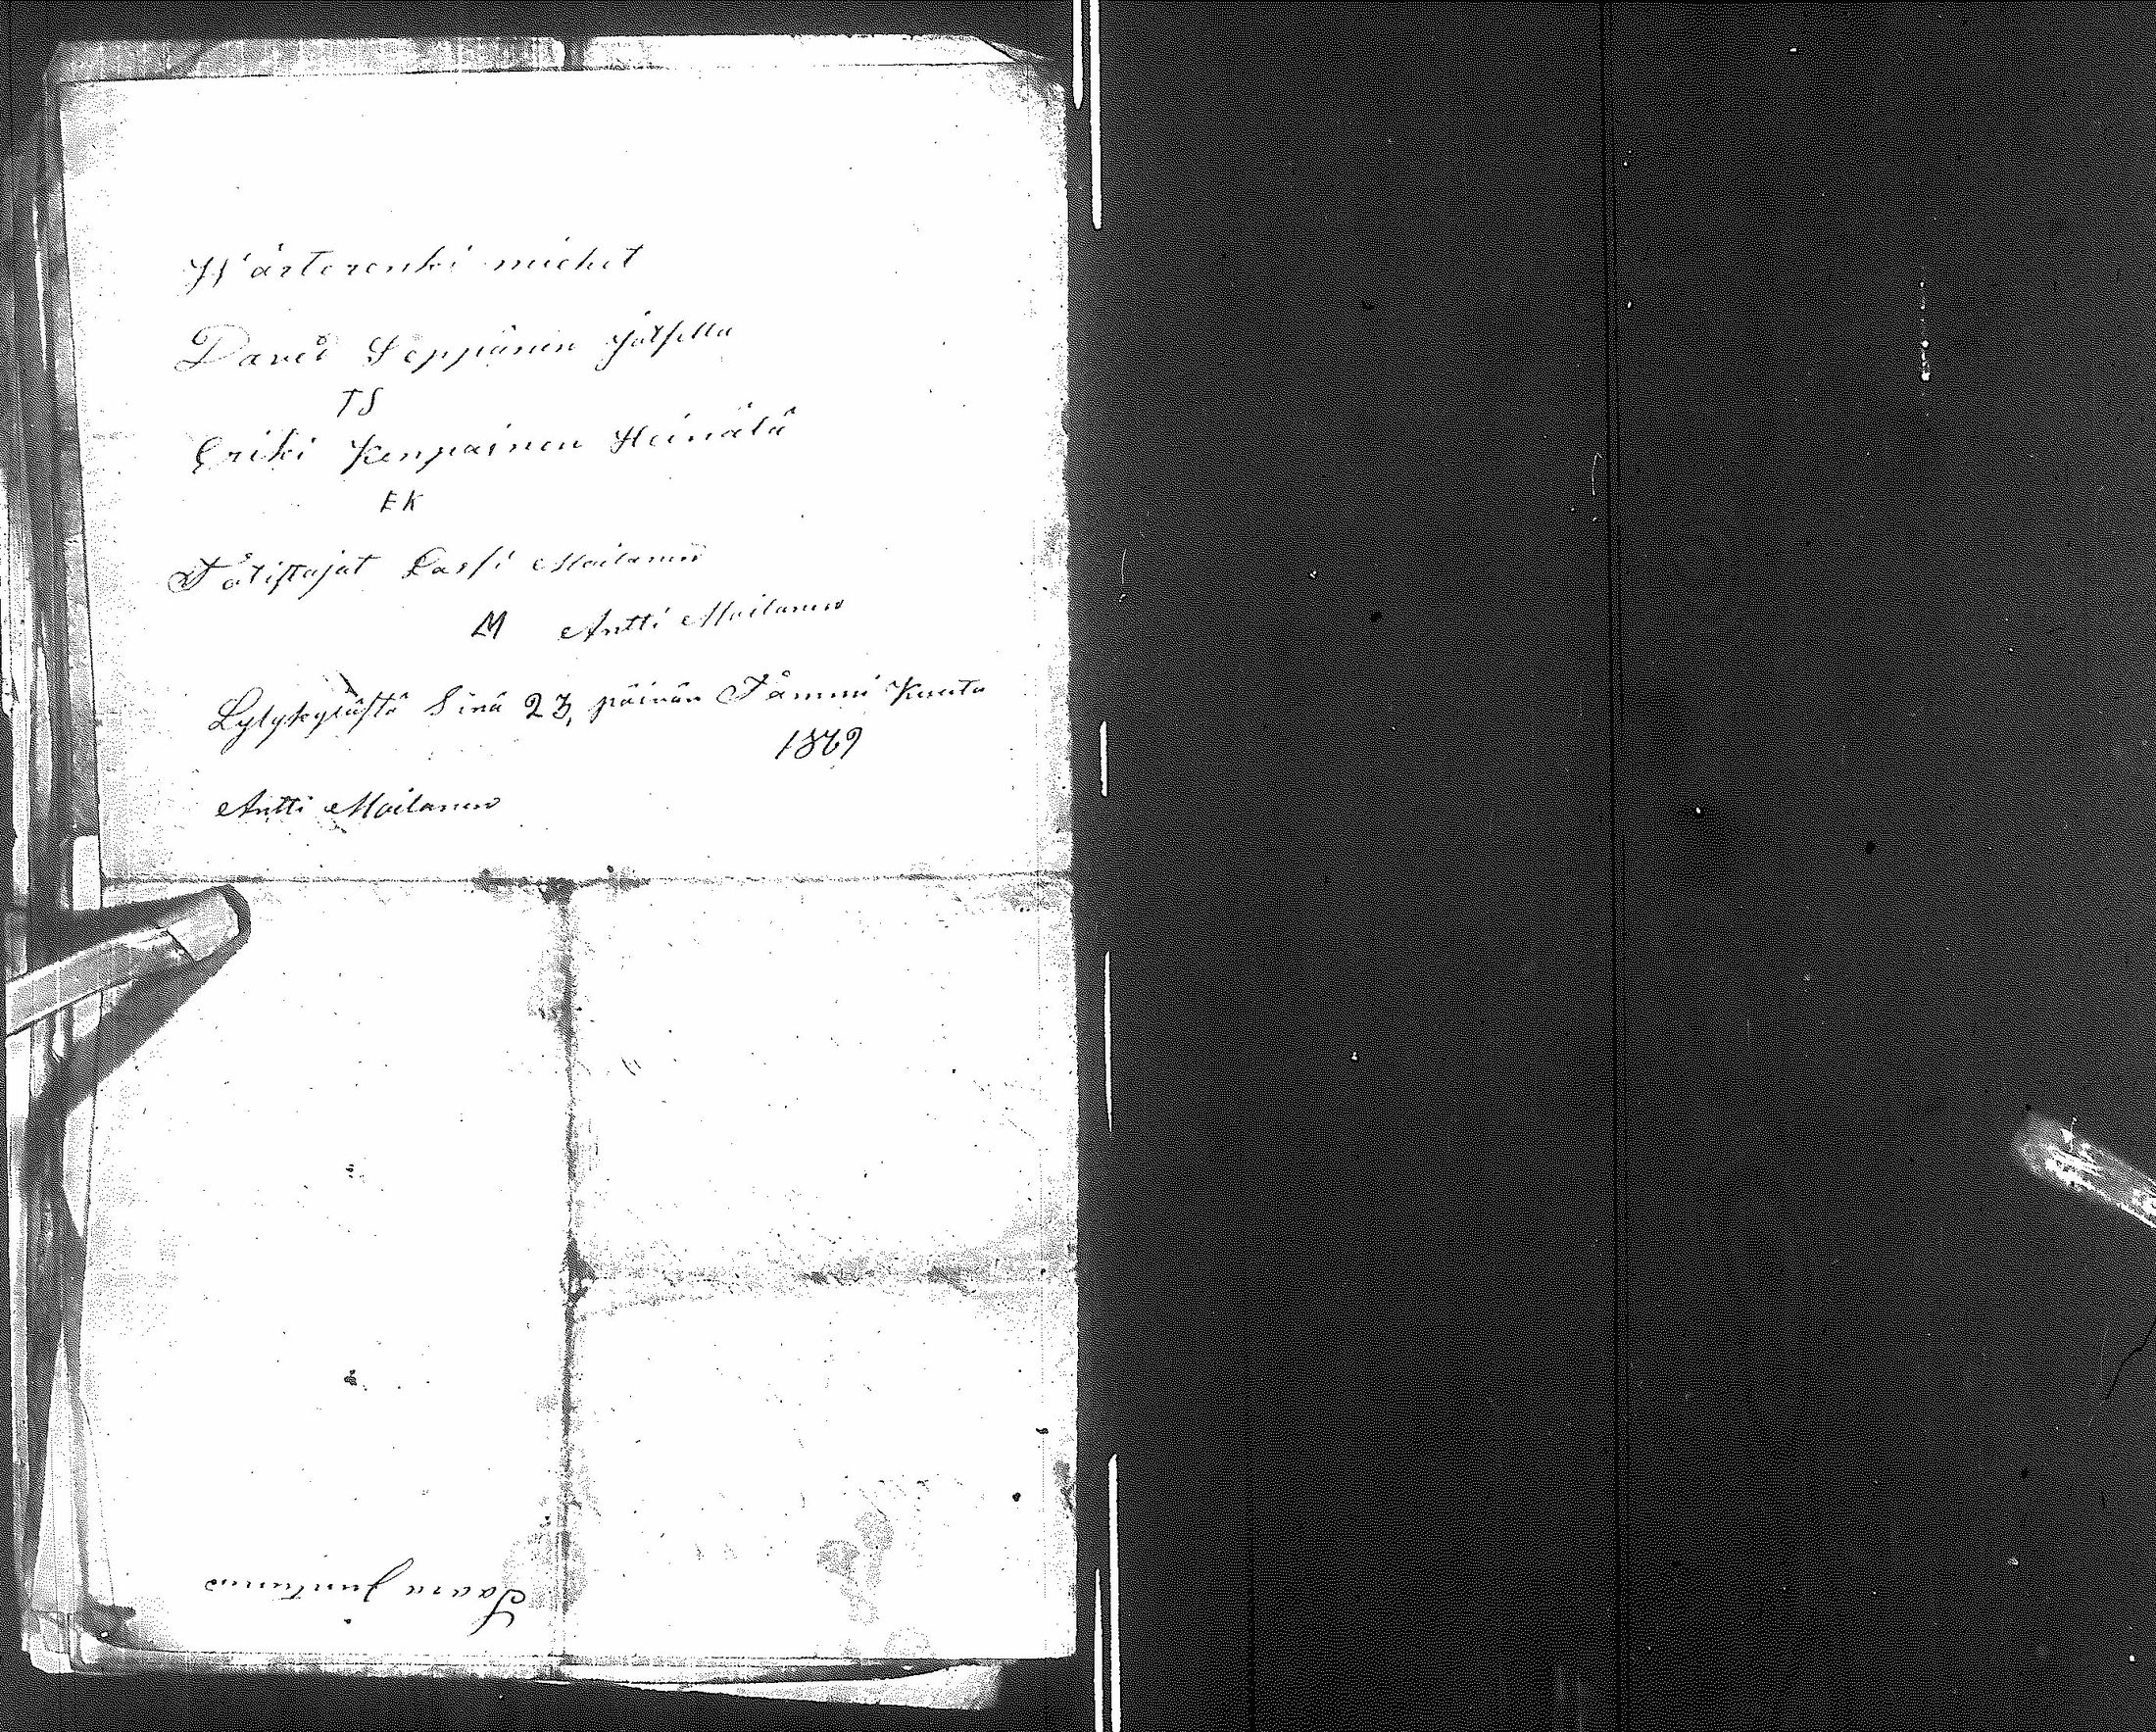 Wärterinki miehet
David Seppänen jätsellä
TS
Eriki Kenpainen Heinälä
EK
Tåtistajat Lassi Moilanen
LM Antti Moilanen
Lylykylästä Sinä 23, päivän Tammi Kuuta
1869
Antti Moilanen
Saara Juntunen